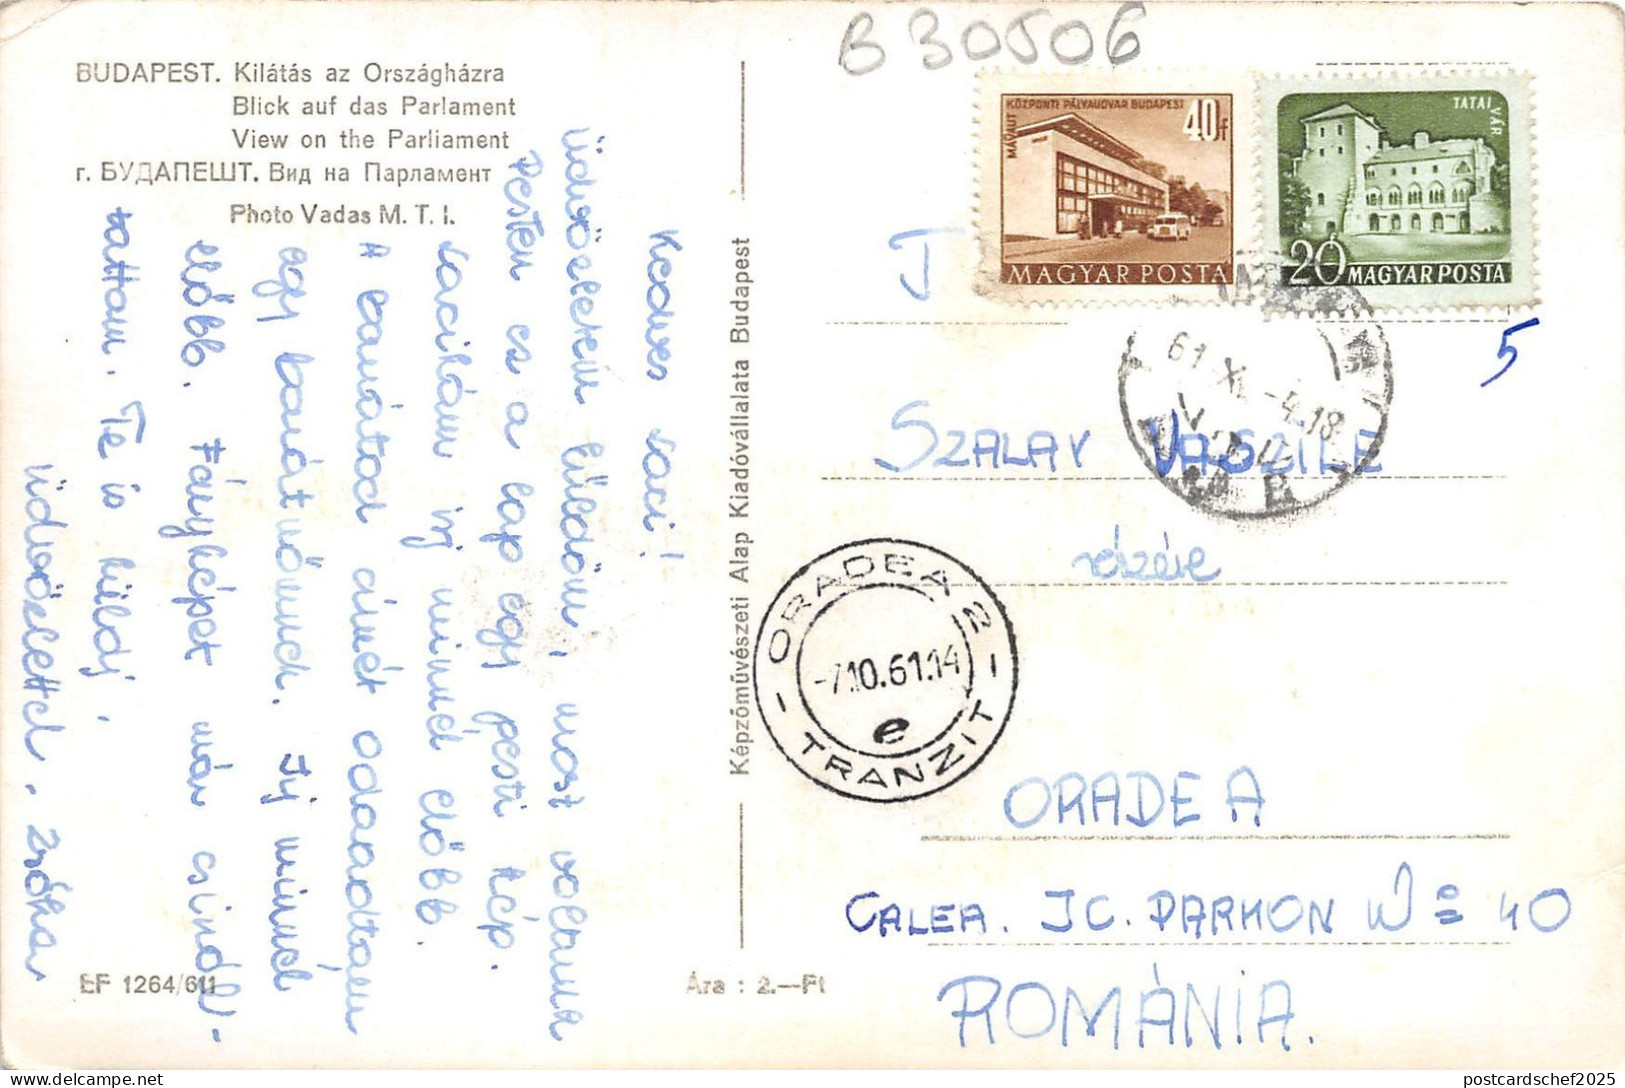 B 30506
BUDAPEST. Kilátás az Országházra
Blick auf das Parlament
View on the Parliament
г. БУДАПЕШТ. Вид на Парламент
Photo Vadas M. T. I.
Kedves Saci!
Üdvözletem küldöm, most voltunk
Pesten es a lap egy pesti kép.
Sacikám irj minnél előbb.
A barátod cimét odaadtam
egy barátnőmnek. Irj minnél
előbb. Fényképet már csinál-
tattam. Te is küldj.
Üdvözlettel.
EF 1264/611
Ára : 2.—Ft
Képzőművészeti Alap Kiadóvállalata Budapest
MÁVAUT KÖZPONTI PÁLYAUDVAR BUDAPEST
40f
MAGYAR POSTA
TATAI VÁR
20
MAGYAR POSTA
61 XI -4.18
5
SZALAY VASZILE
részére
ORADEA 2
-7.10.61.14
e
TRANZIT
ORADEA
CALEA. JC. PARHON № 40
ROMÁNIA.
postcardschef2025